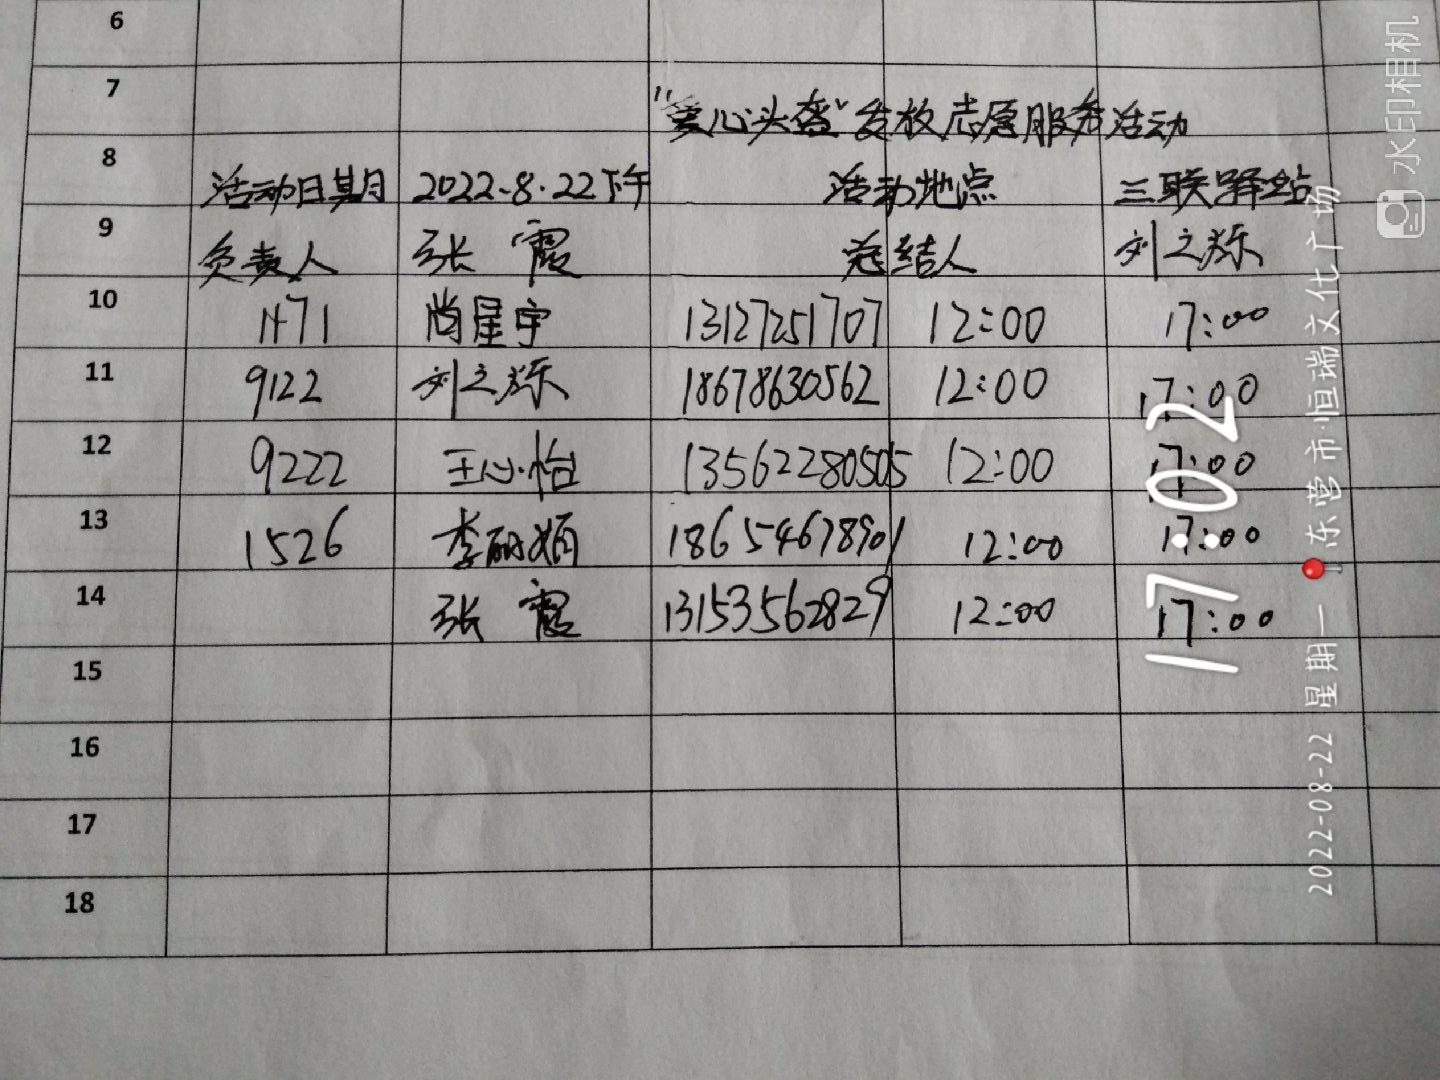 6
7
"爱心头盔"发放志愿服务活动
8 活动日期 2022-8.22下午 活动地点 三联驿站
9 负责人 张霞 总结人 刘之烁
10 1471 尚星宇 13127251707 12:00 17:00
11 9122 刘之烁 18678630562 12:00 17:00
12 9222 王心怡 13562280505 12:00 17:00
13 1526 李丽娟 18654678901 12:00 17:00
14 张霞 13153562829 12:00 17:00
15
16
17
18
17:02
2022-08-22 星期一 东营市·恒瑞文化广场
水印相机